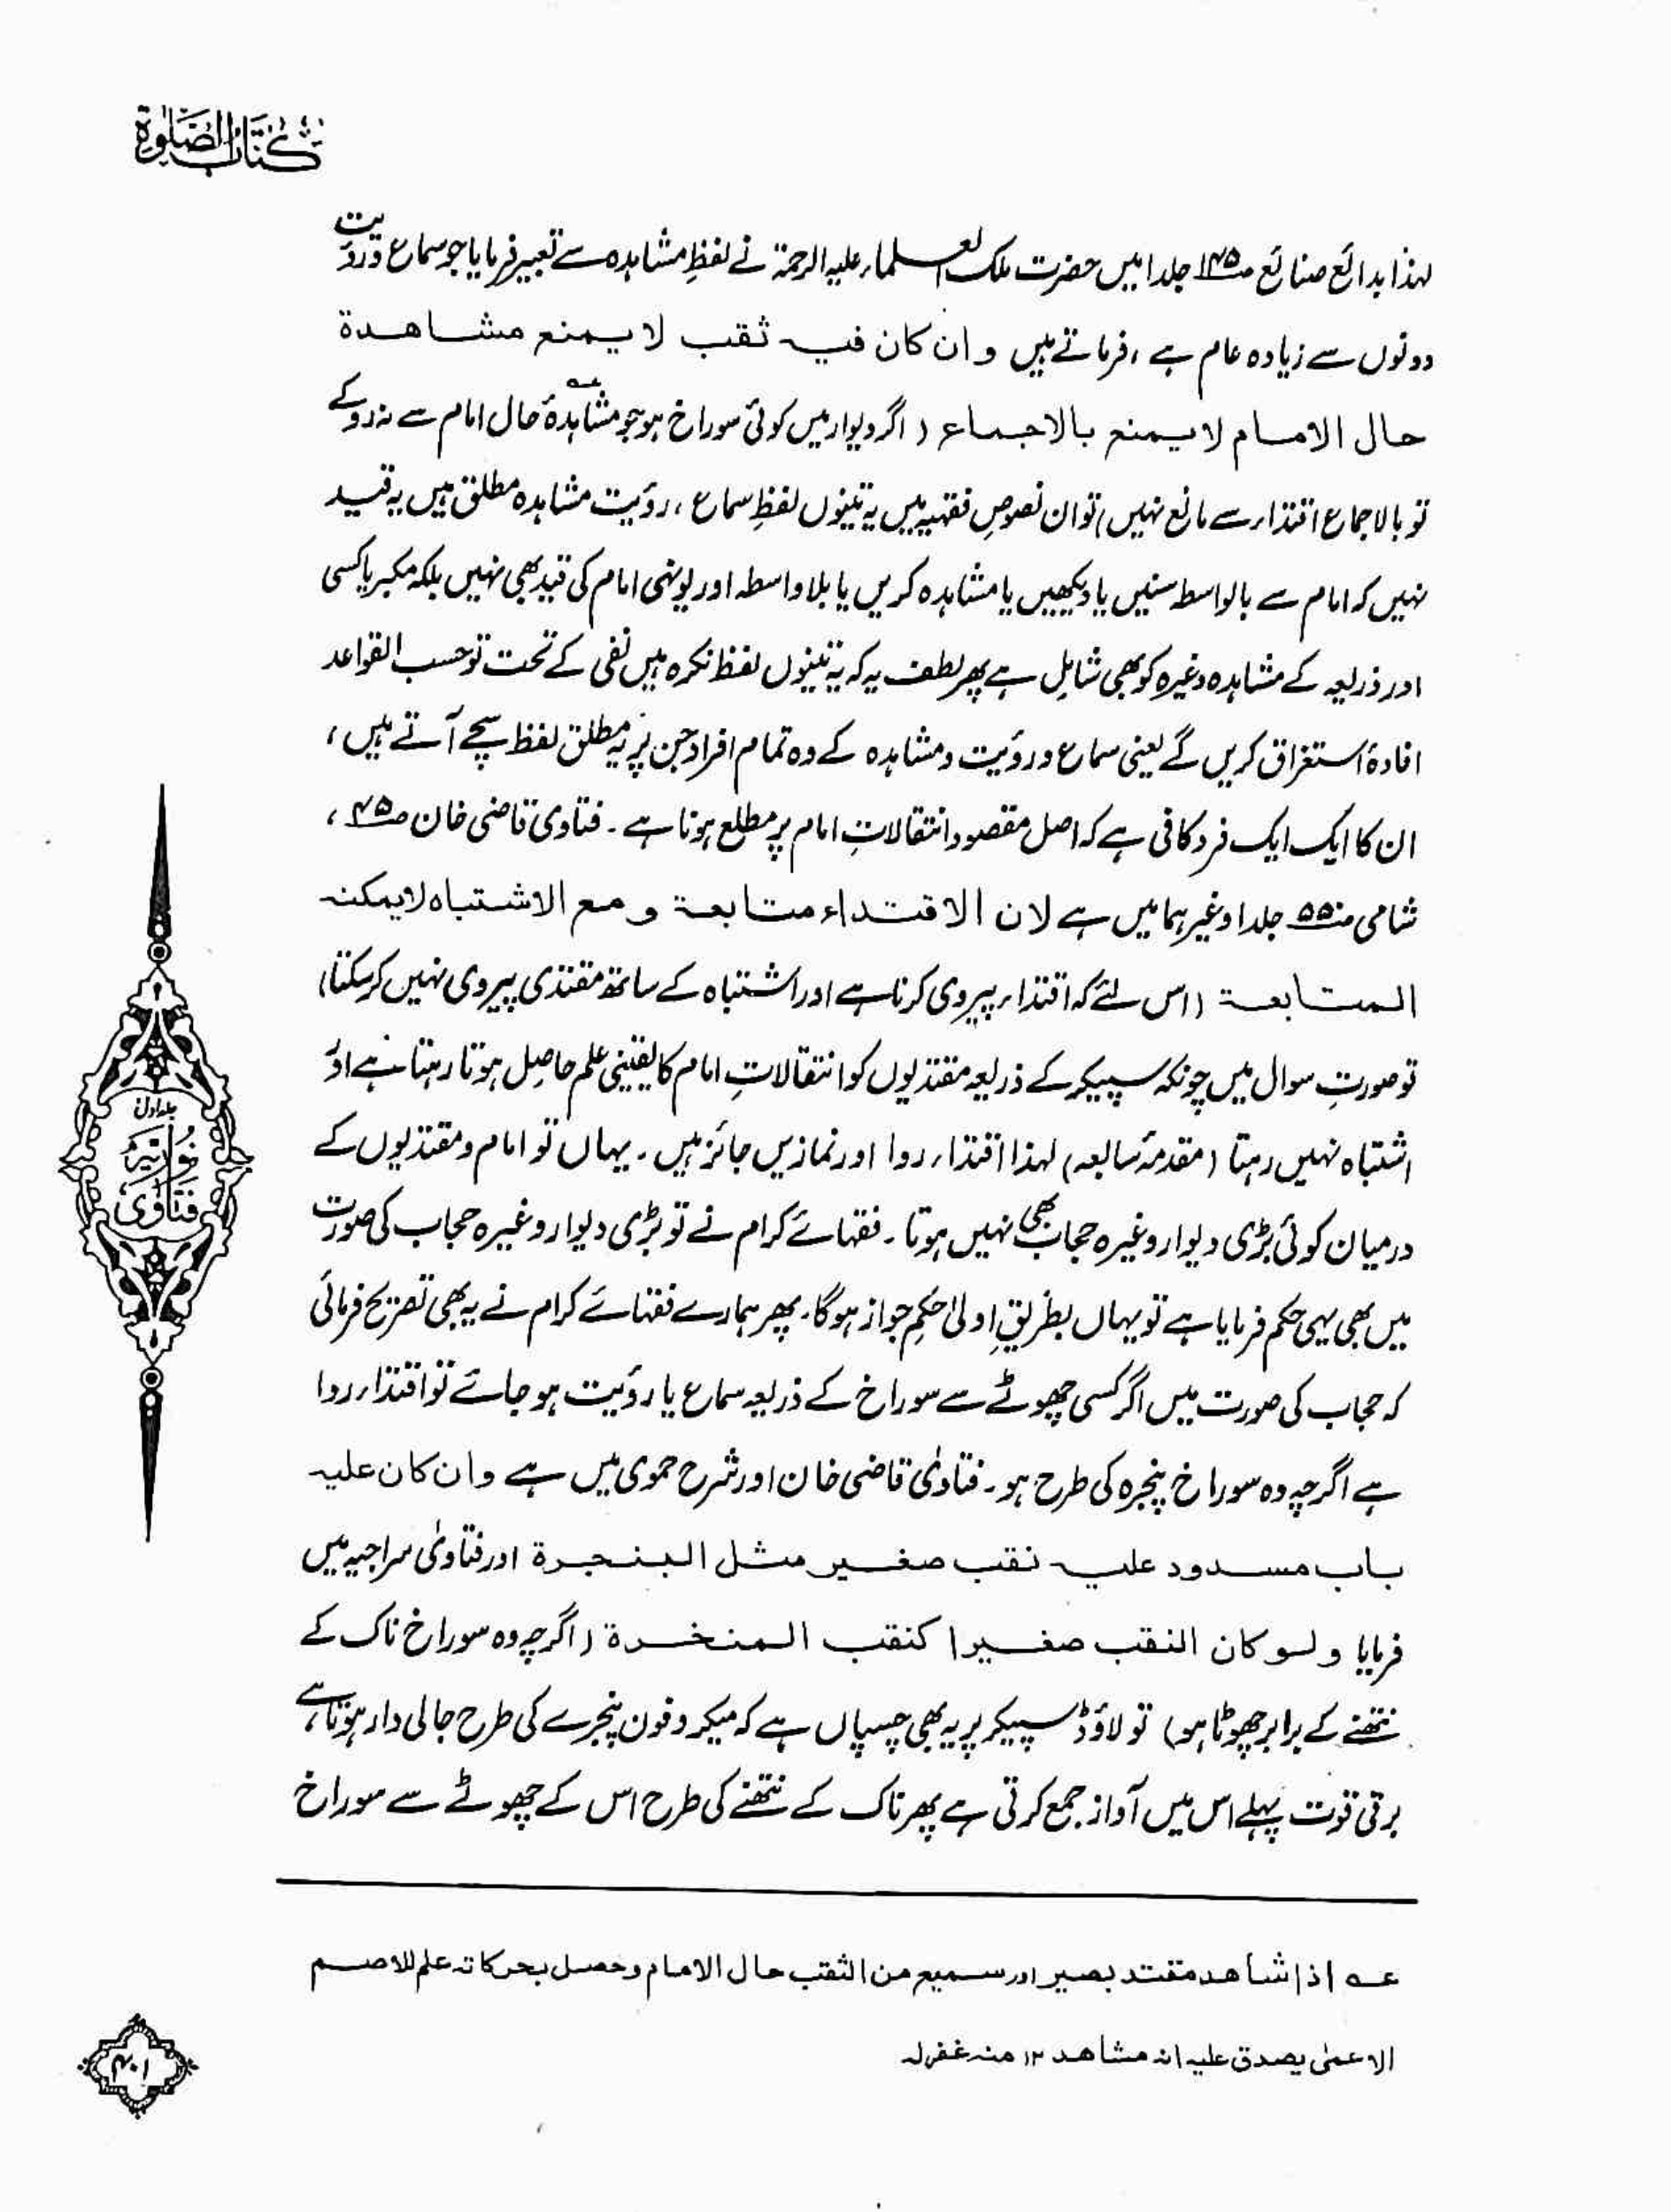 كتاب الصلوٰة
لہذا بدائع صنائع ص۱۴۵ جلد ا میں حضرت ملک العلماء علیہ الرحمۃ نے لفظِ مشاہدہ سے تعبیر فرمایا جو سماع و رؤیت
دونوں سے زیادہ عام ہے ، فرماتے ہیں و ان كان فيه ثقب لا يمنع مشاهدة
حال الامام لا يمنع بالاجماع ( اگر دیوار میں کوئی سوراخ ہو جو مشاہدۂ عه حال امام سے نہ روکے
تو بالاجماع اقتداء سے مانع نہیں) تو ان نصوصِ فقہیہ میں یہ تینوں لفظِ سماع ، رؤیت مشاہدہ مطلق ہیں یہ قید
نہیں کہ امام سے بالواسطہ سنیں یا دیکھیں یا مشاہدہ کریں یا بلا واسطہ اور یونہی امام کی قید بھی نہیں بلکہ مکبر یا کسی
اور ذریعہ کے مشاہدہ وغیرہ کو بھی شامل ہے پھر لطف یہ کہ یہ تینوں لفظ نکرہ ہیں نفی کے تحت تو حسب القواعد
افادۂ استغراق کریں گے یعنی سماع و رؤیت و مشاہدہ کے وہ تمام افراد جن پر یہ مطلق لفظ سچے آتے ہیں ،
ان کا ایک ایک فرد کافی ہے کہ اصل مقصود انتقالاتِ امام پر مطلع ہونا ہے ۔ فتاوی قاضی خان ص۴۵ ،
شامی ص۵۵۰ جلد ا وغیرہما میں ہے لان الاقتداء متابعة و مع الاشتباه لا يمكنه
المتابعة (اس لئے کہ اقتداء پیروی کرنا ہے اور اشتباہ کے ساتھ مقتدی پیروی نہیں کر سکتا)
تو صورتِ سوال میں چونکہ سپیکر کے ذریعہ مقتدیوں کو انتقالاتِ امام کا یقینی علم حاصل ہوتا رہتا ہے اور
اشتباہ نہیں رہتا (مقدمۂ سابعہ) لہذا اقتداء روا اور نمازیں جائز ہیں ۔ یہاں تو امام و مقتدیوں کے
درمیان کوئی بڑی دیوار وغیرہ حجاب بھی نہیں ہوتا ۔ فقہائے کرام نے تو بڑی دیوار وغیرہ حجاب کی صورت
میں بھی یہی حکم فرمایا ہے تو یہاں بطریقِ اولیٰ حکمِ جواز ہوگا۔ پھر ہمارے فقہائے کرام نے یہ بھی تصریح فرمائی
کہ حجاب کی صورت میں اگر کسی چھوٹے سے سوراخ کے ذریعہ سماع یا رؤیت ہو جائے تو اقتداء روا
ہے اگرچہ وہ سوراخ پنجرہ کی طرح ہو ۔ فتاویٰ قاضی خان اور شرح حموی میں ہے وان كان عليه
باب مسدود عليه نقب صغير مثل البنجرة اور فتاویٰ سراجیہ میں
فرمایا و لو كان النقب صغيرا كنقب المنخرة (اگرچہ وہ سوراخ ناک کے
نتھنے کے برابر چھوٹا ہو) تو لاؤڈ سپیکر پر یہ بھی چسپاں ہے کہ میکروفون پنجرے کی طرح جالی دار ہوتا ہے ،
برقی قوت پہلے اس میں آواز جمع کرتی ہے پھر ناک کے نتھنے کی طرح اس کے چھوٹے سے سوراخ
عه اذا شاهد مقتد بصير اور سميع من الثقب حال الامام وحصل بحركاته علم للاصم
الاعمٰى يصدق عليه انه مشاهد ۱۲ منہ غفرلہ
جلد اول
نوریہ
فتاویٰ
۴۰۱